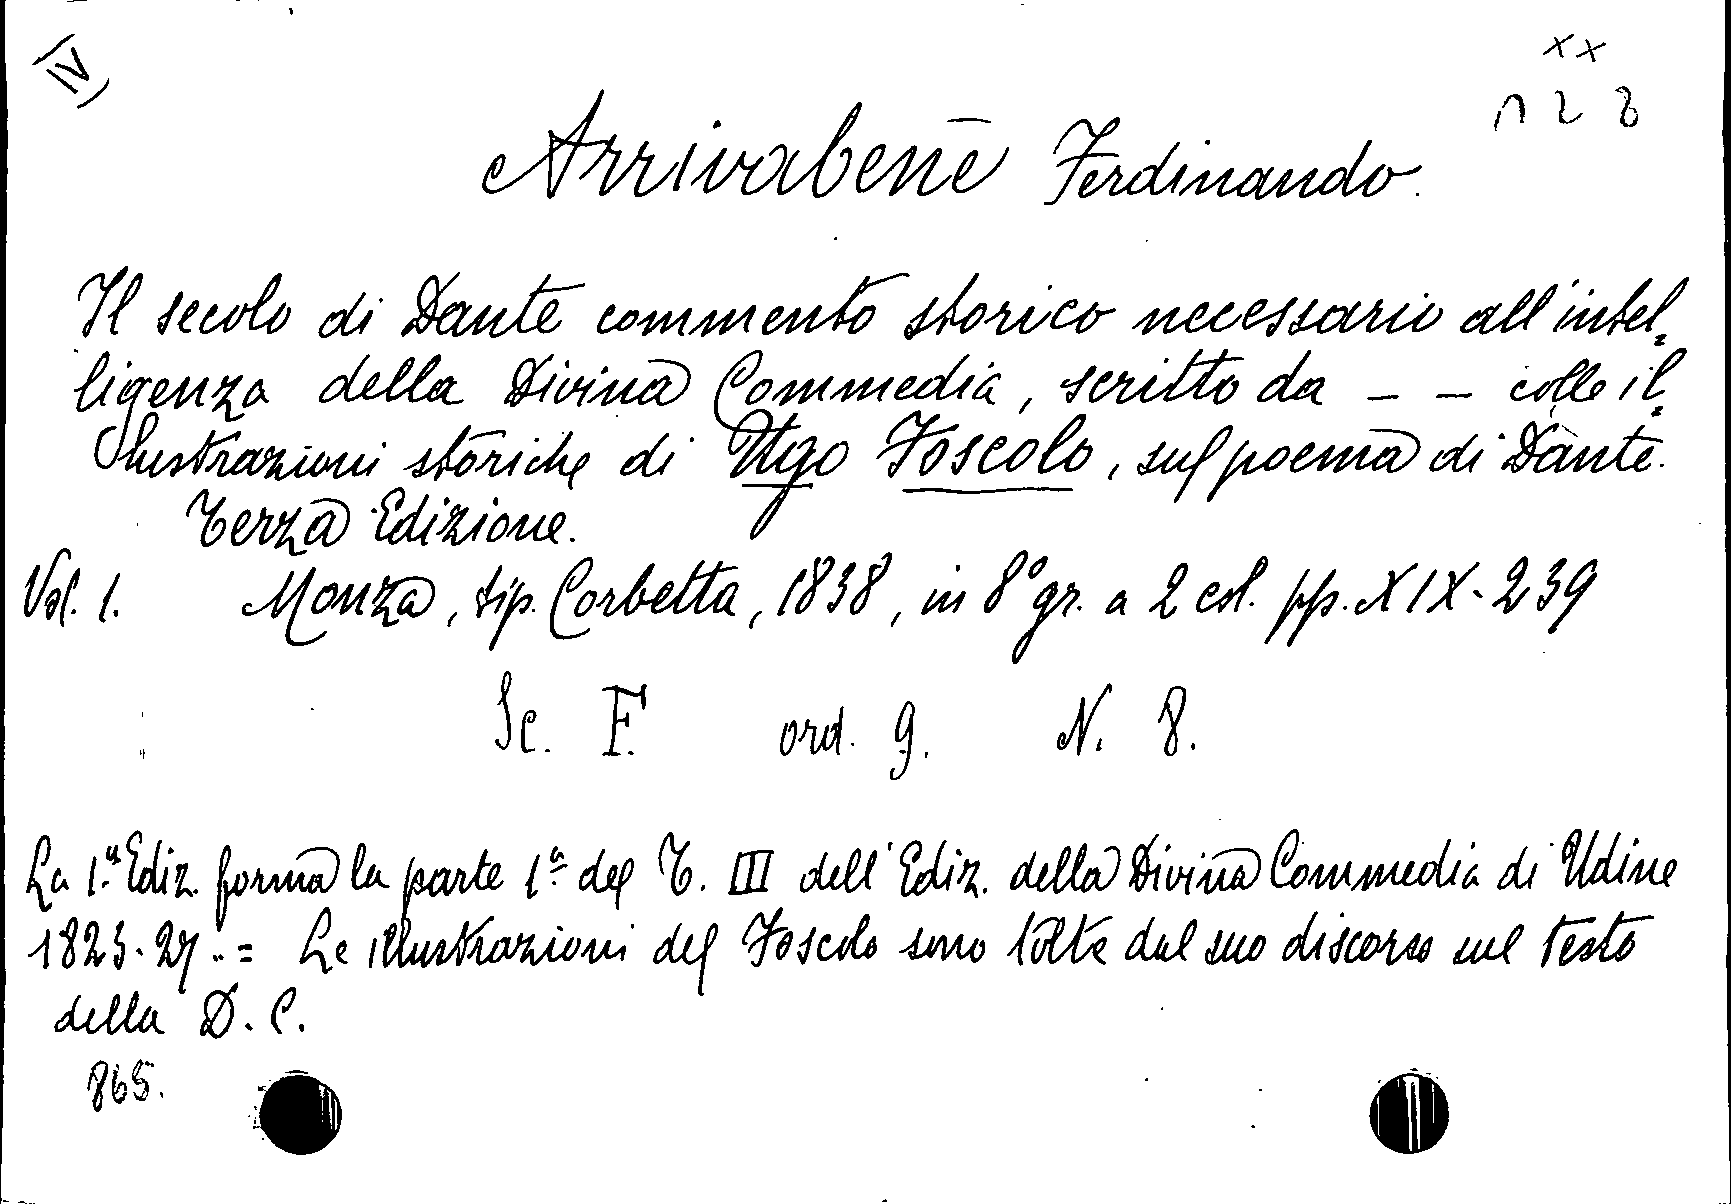 IV
xx
n 2 8
Arrivabene Ferdinando.
Il secolo di Dante commento storico necessario all'intel-
ligenza della Divina Commedia, scritto da – – colle il-
lustrazioni storiche di Ugo Foscolo, sul poema di Dante.
Terza Edizione.
Vol. 1. Monza, tip. Corbetta, 1838, in 8° gr. a 2 col. pp. XIX-239
Sc. F. ord. 9. N. 8.
La 1.ª Ediz. forma la parte 1ª del T. III dell'Ediz. della Divina Commedia di Udine
1823-27 .. = Le illustrazioni del Foscolo sono tolte dal suo discorso sul testo
della D. C.
865.